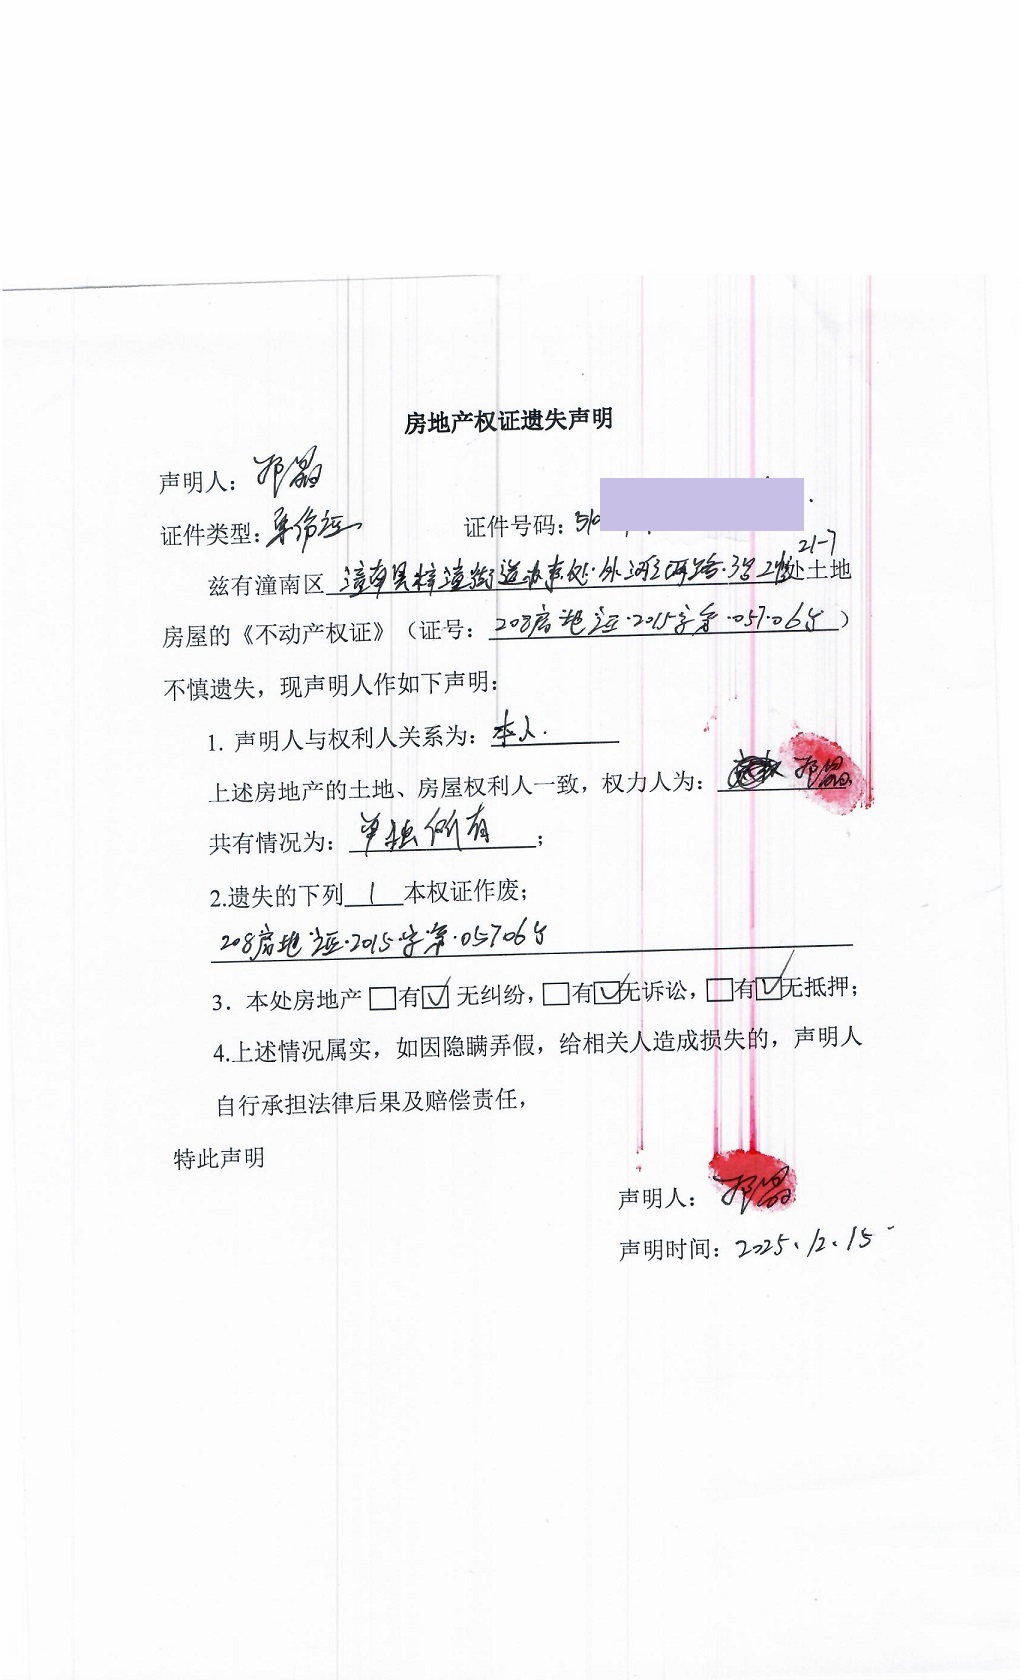 房地产权证遗失声明
声明人：邓磊
证件类型：身份证 证件号码：510
21-7
兹有潼南区潼南县梓潼街道办事处·外河西路·3号2幢处土地
房屋的《不动产权证》（证号：208房地证·2015字第·05706号）
不慎遗失，现声明人作如下声明：
1. 声明人与权利人关系为：本人.
上述房地产的土地、房屋权利人一致，权力人为：邓磊
共有情况为：单独所有；
2.遗失的下列1本权证作废；
208房地证·2015·字第·05706号
3. 本处房地产□有☑无纠纷，□有☑无诉讼，□有☑无抵押；
4.上述情况属实，如因隐瞒弄假，给相关人造成损失的，声明人
自行承担法律后果及赔偿责任，
特此声明
声明人：邓磊
声明时间：2025.12.15